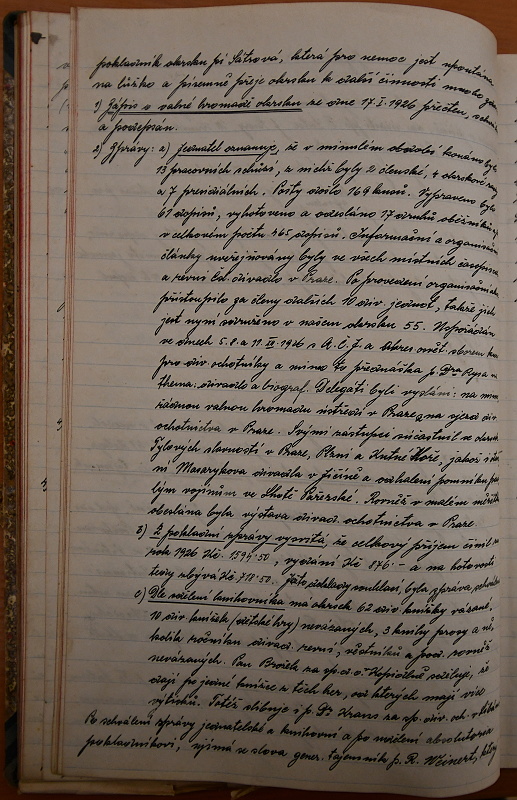 pokladník okrsku pí Sátrová, která pro nemoc jest upoutána
na lůžko a písemně přeje okrsku k další činnosti mnoho
1) Zápis o valné hromadě okrsku ze dne 17.I.1926 přečten,
a podepsán.
2) Zprávy: a) jednatel oznamuje, že v minulém období konáno bylo
13 pracovních schůzí, z nichž byly 2 členské, 4 okrskové
a 7 presidiálních. Pošty došlo 169 kusů. Vypraveno bylo
61 dopisů, vyhotoveno a odesláno 17 druhů oběžníků
v celkovém počtu 465 dopisů. Informační a organisační
články uveřejňovány byly ve všech místních časopisech
a revui Čs. divadlo v Praze. Po provedení organisačním
přistoupilo za členy dalších 10 div. jednot, takže jich
jest nyní sdruženo v našem okrsku 55. Uspořádán
ve dnech 5. a 11. 1926 s A.Č.J. a okres. osvět. sborem kurs
pro div. ochotníky a mimo to přednáška p. Dra Rypa na
thema: divadlo a biograf. Delegáti byli vysláni: na mimo-
řádnou valnou hromadu ústředí v Praze, na sjezd div.
ochotnictva v Praze. Svými zástupci súčastnil se okrsek
Tylových slavností v Praze, Plzni a Kutné Hoře, jakož i
Masarykova divadla v Jičíně a odhalení pomníku pad-
lým vojínům ve Lhotě Pařezské. Rovněž v malém měřítku
obeslána byla výstava divad. ochotnictva v Praze.
b) Z pokladní zprávy vysvítá, že celkový příjem činil za
rok 1926 Kč 1594·50, vydání Kč 876·- a na hotovosti
tedy zbývá Kč 718·50. Jeto doklady souhlasí, byla zpráva schválena
c) Dle sdělení knihovníka má okrsek 62 div. knížky vázané,
10 div. knížek (dětské hry) nevázaných, 3 knihy prosy a ně-
kolik ročníků divad. revuí, věstníků a pod. rovněž
nevázaných. Pan Brožek za sp. d. o. Kopidlně sděluje, že
dají po jedné knížce z těch her, od kterých mají více
výtisků. Totéž slibuje i p. Dr Kraus za sp. div. och. v
Po schválení zprávy jednatelské a knihovní a po udělení absolutoria
pokladníkovi, ujímá se slova gener. tajemník p. R. Weinert, který